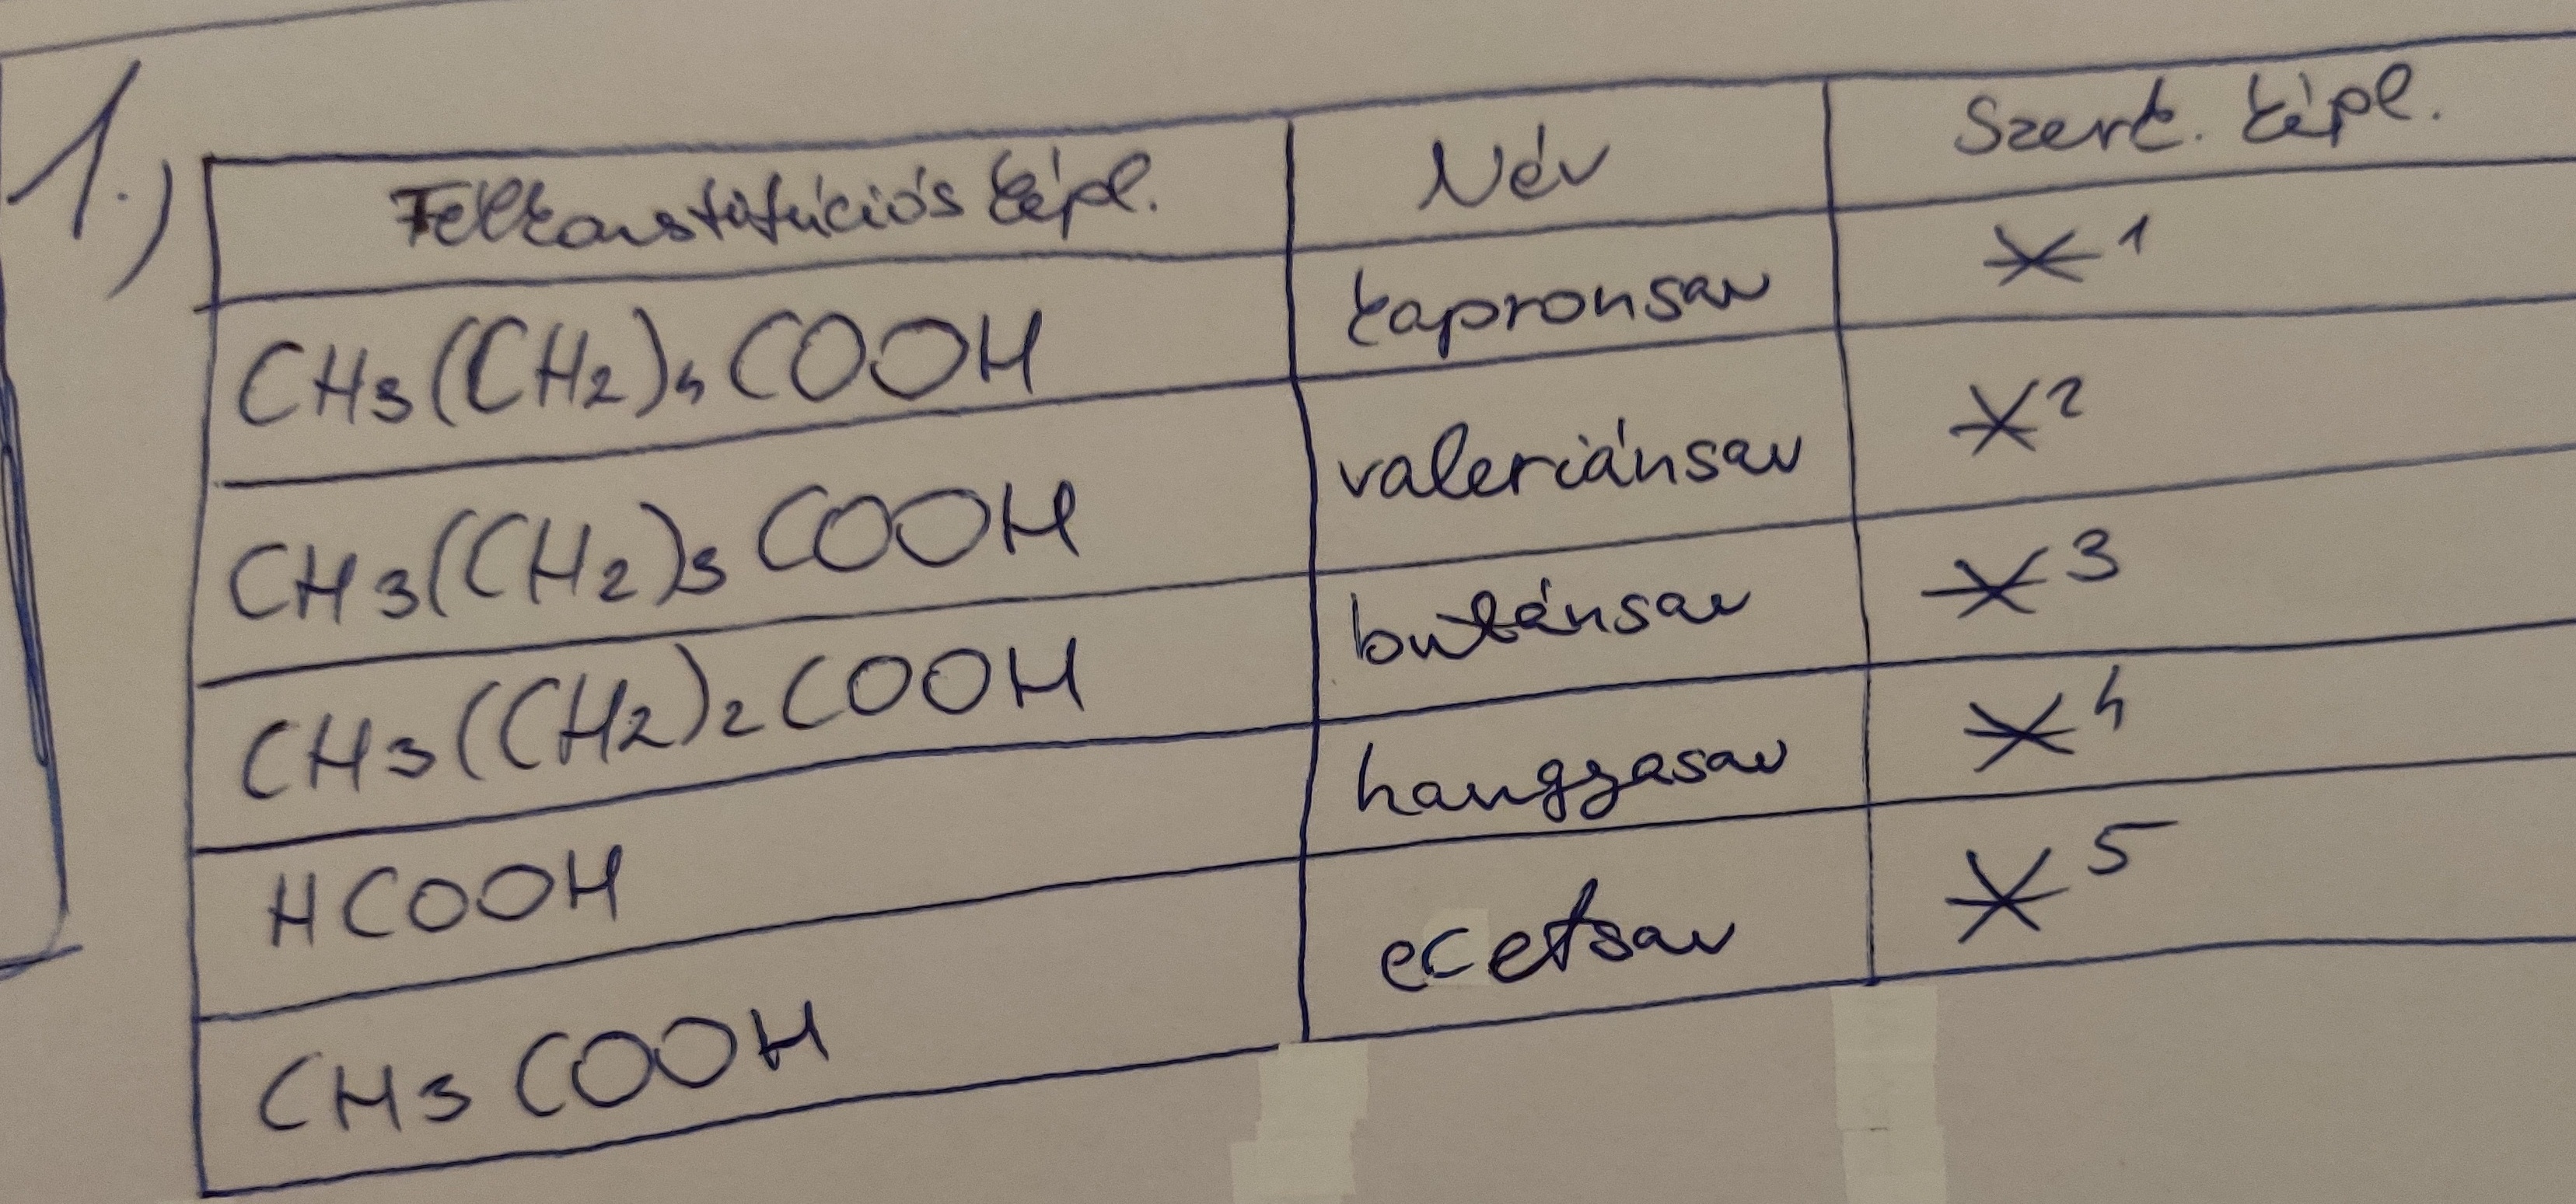 1.)
Félkonstitúciós képl. Név Szerk. képl.
CH3(CH2)4COOH kapronsav *1
CH3(CH2)3COOH valeriánsav *2
CH3(CH2)2COOH butánsav *3
HCOOH hangyasav *4
CH3COOH ecetsav *5